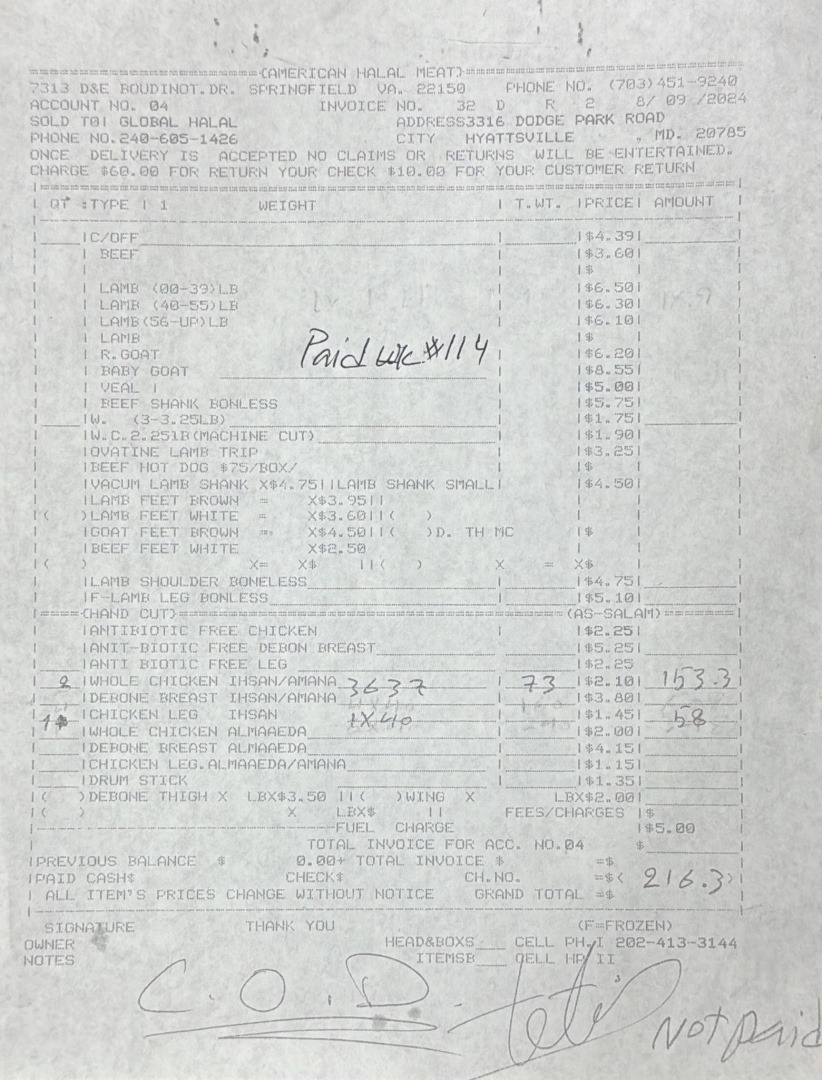 (AMERICAN HALAL MEAT)
7313 D&E BOUDINOT.DR. SPRINGFIELD VA. 22150 PHONE NO. (703)451-9240
ACCOUNT NO. 04 INVOICE NO. 32 D R 2 8/ 09 /2024
SOLD TO! GLOBAL HALAL ADDRESS3316 DODGE PARK ROAD
PHONE NO.240-605-1426 CITY HYATTSVILLE , MD. 20785
ONCE DELIVERY IS ACCEPTED NO CLAIMS OR RETURNS WILL BE ENTERTAINED.
CHARGE $60.00 FOR RETURN YOUR CHECK $10.00 FOR YOUR CUSTOMER RETURN
QT :TYPE | 1 WEIGHT | T.WT. |PRICE| AMOUNT
C/OFF $4.39
BEEF $3.60
$
LAMB (00-39)LB $6.50
LAMB (40-55)LB $6.30
LAMB(56-UP)LB $6.10
LAMB $
R.GOAT $6.20
Paid #114
BABY GOAT $8.55
VEAL | $5.00
BEEF SHANK BONLESS $5.75
W. (3-3.25LB) $1.75
W.C.2.251B(MACHINE CUT) $1.90
OVATINE LAMB TRIP $3.25
BEEF HOT DOG $75/BOX/ $
VACUM LAMB SHANK X$4.75||LAMB SHANK SMALL| $4.50
LAMB FEET BROWN = X$3.95||
( )LAMB FEET WHITE = X$3.60||( )
GOAT FEET BROWN = X$4.50||( )D. TH MC $
BEEF FEET WHITE X$2.50
( ) X= X$ ||( ) X = X$
LAMB SHOULDER BONELESS $4.75
F-LAMB LEG BONLESS $5.10
(HAND CUT) (AS-SALAM)
ANTIBIOTIC FREE CHICKEN $2.25
ANIT-BIOTIC FREE DEBON BREAST $5.25
ANTI BIOTIC FREE LEG $2.25
2 WHOLE CHICKEN IHSAN/AMANA 3637 73 $2.10 153.3
DEBONE BREAST IHSAN/AMANA $3.80
CHICKEN LEG IHSAN 1X40 $1.45 58
WHOLE CHICKEN ALMAAEDA $2.00
DEBONE BREAST ALMAAEDA $4.15
CHICKEN LEG.ALMAAEDA/AMANA $1.15
DRUM STICK $1.35
( )DEBONE THIGH X LBX$3.50 ||( )WING X LBX$2.00
( ) X LBX$ || FEES/CHARGES |$
FUEL CHARGE |$5.00
TOTAL INVOICE FOR ACC. NO.04 $
PREVIOUS BALANCE $ 0.00+ TOTAL INVOICE $ =$
PAID CASH$ CHECK$ CH.NO. =$( 216.3)
ALL ITEM'S PRICES CHANGE WITHOUT NOTICE GRAND TOTAL =$
SIGNATURE THANK YOU (F=FROZEN)
OWNER HEAD&BOXS___ CELL PH.I 202-413-3144
NOTES ITEMSB___ CELL HP II
C.O.D.
Not paid